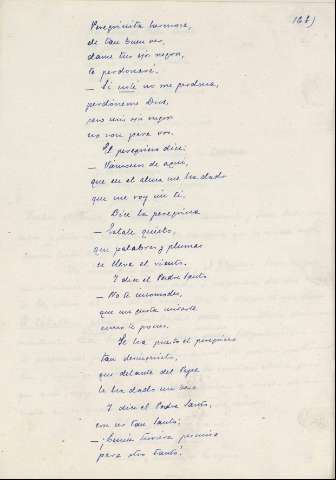 161)
Peregrinita hermosa,
de tan buen ver,
dame tus ojos negros,
te perdonaré.
— Si usté no me perdona,
perdóneme Dios,
pero mis ojos negros
no son para vos.
El peregrino dice:
— Vámonos de aquí,
que en el alma me ha dado
que me voy sin ti.
Dice la peregrina
— Estate quieto,
que palabras y plumas
se lleva el viento.
Y dice el Padre Santo
— No te incomodes,
que me gusta mirarte
como te pones.
Se ha puesto el peregrino
tan
que delante del Papa
le ha dado un beso
Y dice el Padre Santo,
con ser tan Santo:
— ¡Quién tuviera permiso
para otro tanto!